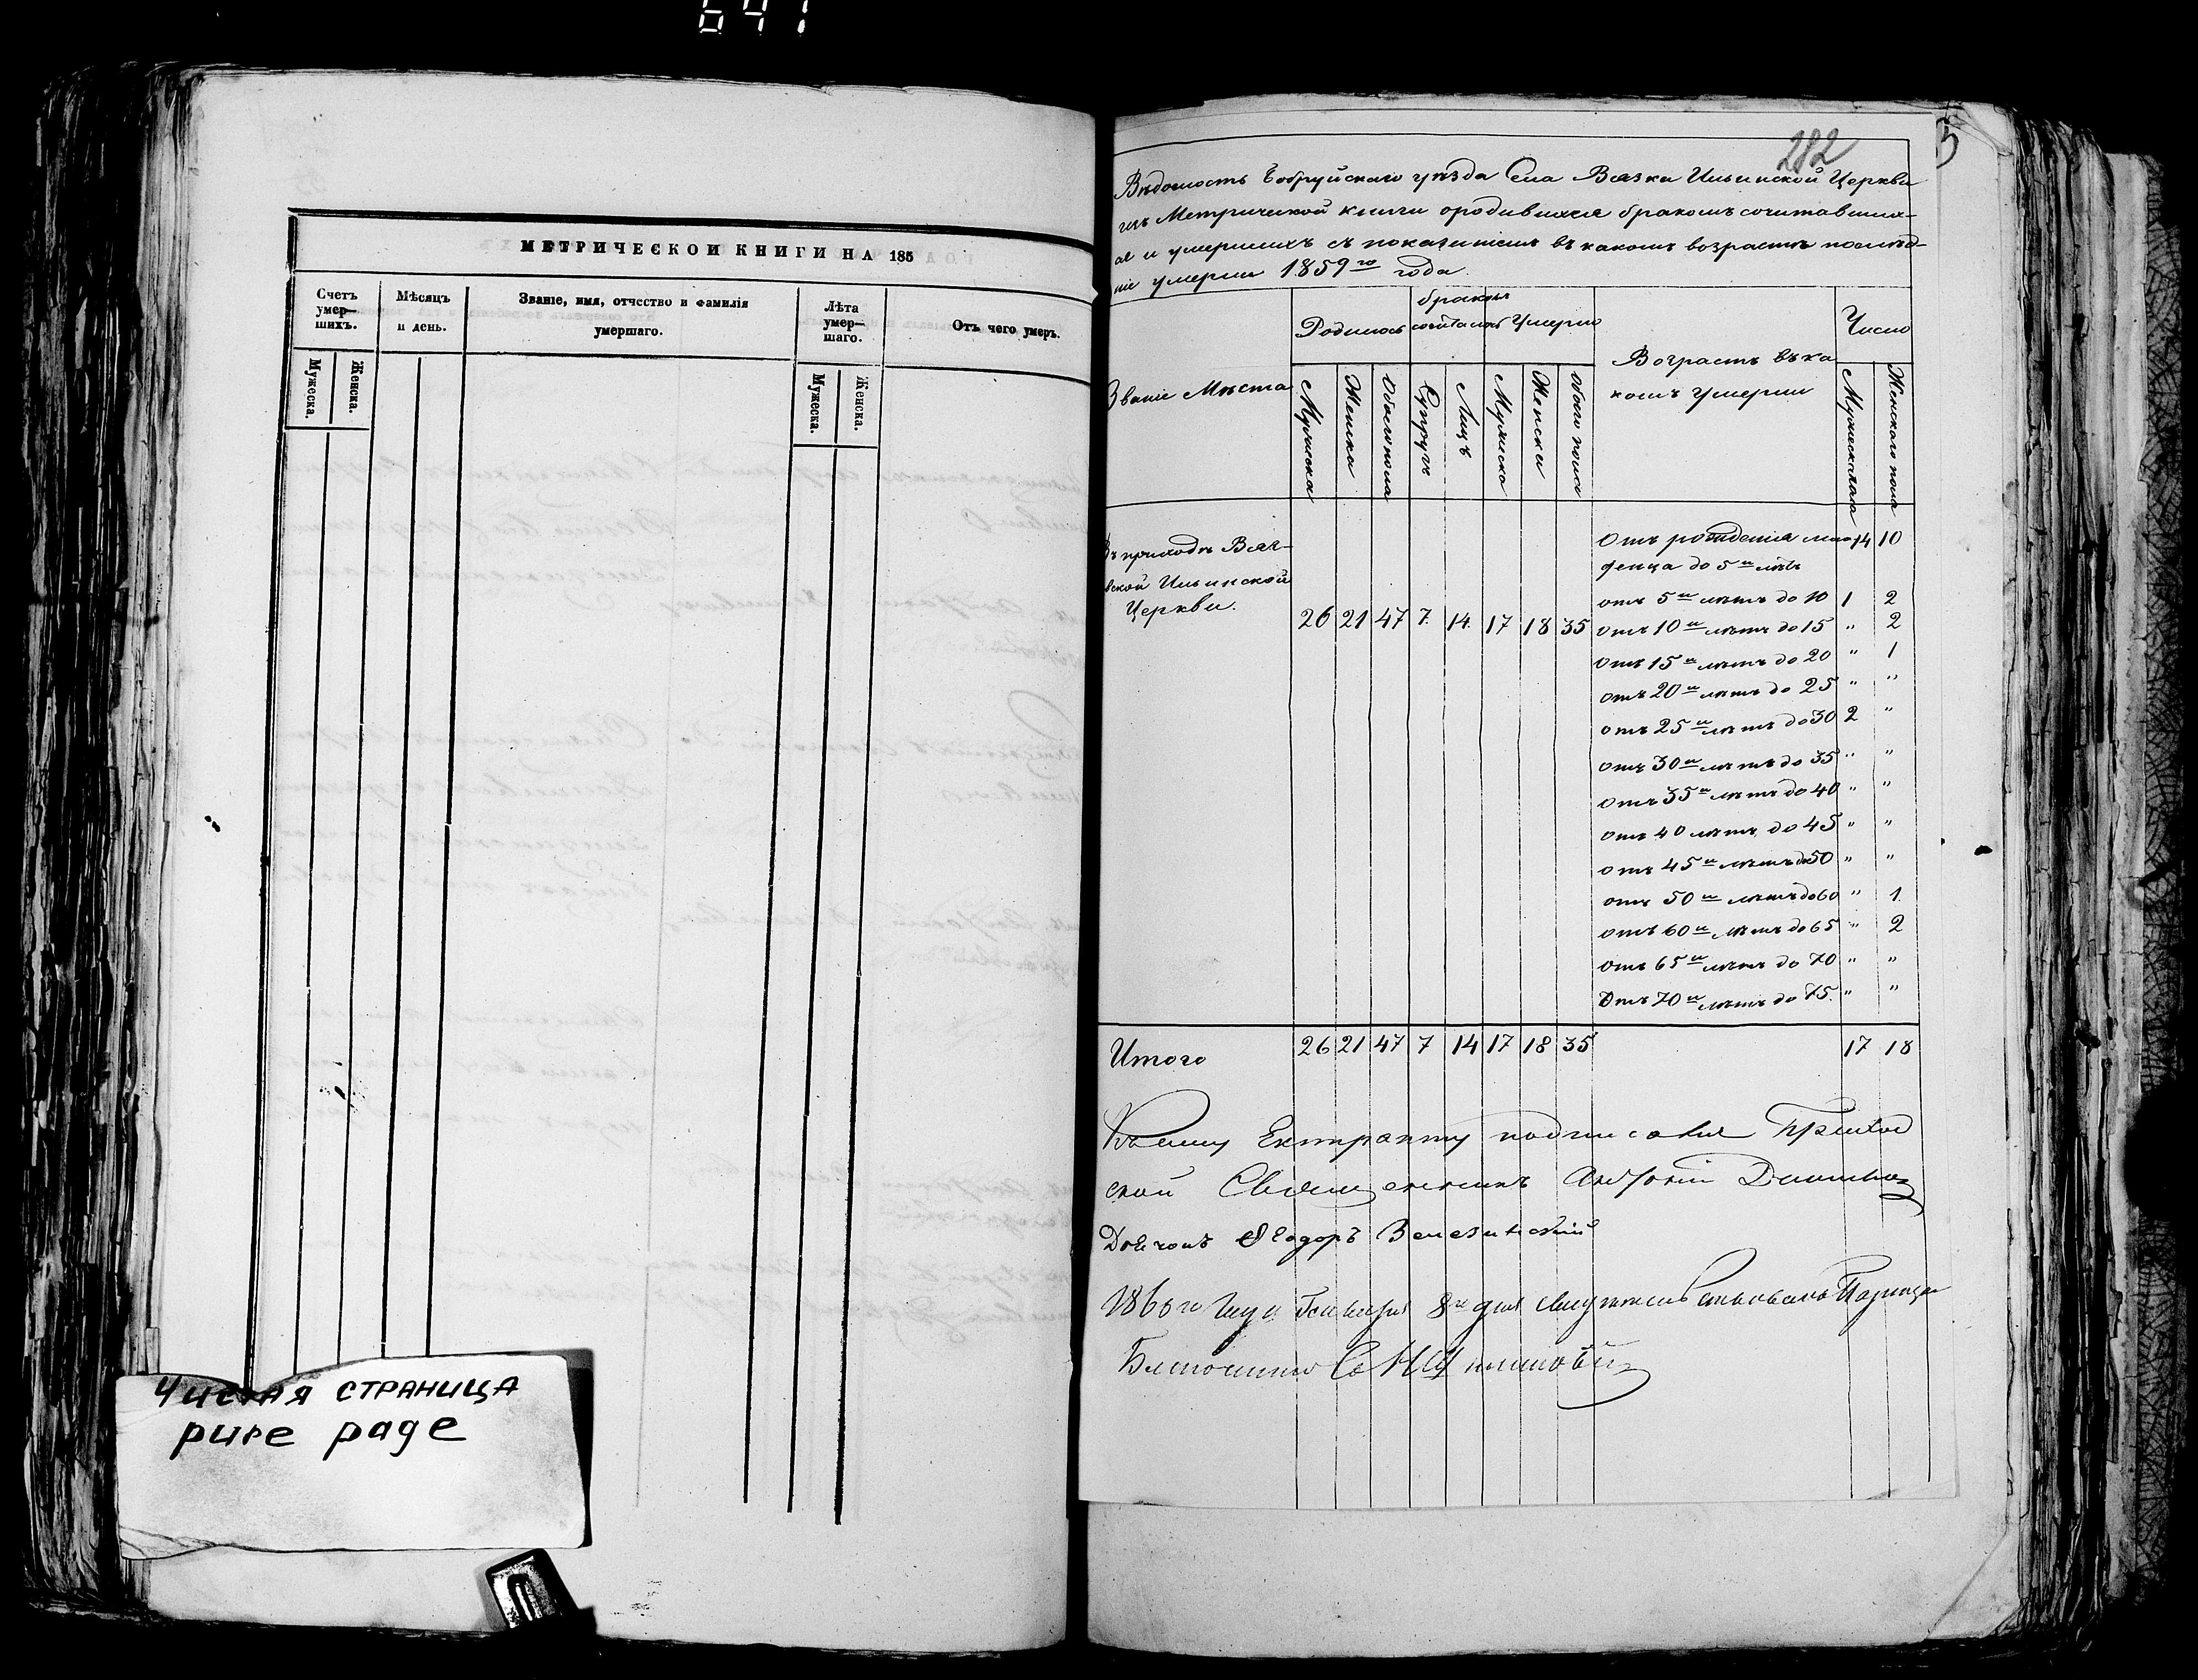 641
МЕТРИЧЕСКОЙ КНИГИ НА 185
Счетъ умер—шихъ.
Мужеска.
Женска.
Мѣсяцъ и день.
Званіе, имя, отчество и фамилія умершаго.
Лѣта умер—шаго.
Мужеска.
Женска.
Отъ чего умеръ.
Чистая страница
pure page
282
Вѣдомость Бобруйскаго уѣзда Села Вязка Ильинской Церкви
изъ Метрической книги о родившихся бракомъ сочетавших-
ся и умершихъ съ показаніемъ въ какомъ возрастѣ послѣд-
ніе умерли 1859го года.
Званіе Мѣста
Родилось
бракомъ сочеталось
Умерло
Возрастъ въ ка
комъ умерли
Число
Мужеска
Женска
Обоего пола
Супругъ
Лицъ
Мужеска
Женска
Обоего пола
Мужеска пола
Женскаго пола
Въ приходѣ Вяз-
ской Ильинской
Церкви.
26 21 47 7. 14. 17 18 35
Отъ рожденія мла
денца до 5и лѣтъ 14 10
отъ 5и лѣтъ до 10 1 2
отъ 10и лѣтъ до 15 " 2
отъ 15и лѣтъ до 20 " 1
отъ 20и лѣтъ до 25 " "
отъ 25и лѣтъ до 30 2 "
отъ 30и лѣтъ до 35 " "
отъ 35и лѣтъ до 40 " "
отъ 40 лѣтъ до 45 " "
отъ 45и лѣтъ до 50 " "
отъ 50и лѣтъ до 60 " 1.
отъ 60и лѣтъ до 65 " 2
отъ 65и лѣтъ до 70 " "
Отъ 70и лѣтъ до 75. " "
Итого 26 21 47 7 14 17 18 35 17 18
Къ сему Екстракту подписался Приход
ской Священникъ Антоній
Дьячокъ Ѳеодоръ
1860го Года Генваря 8го дня